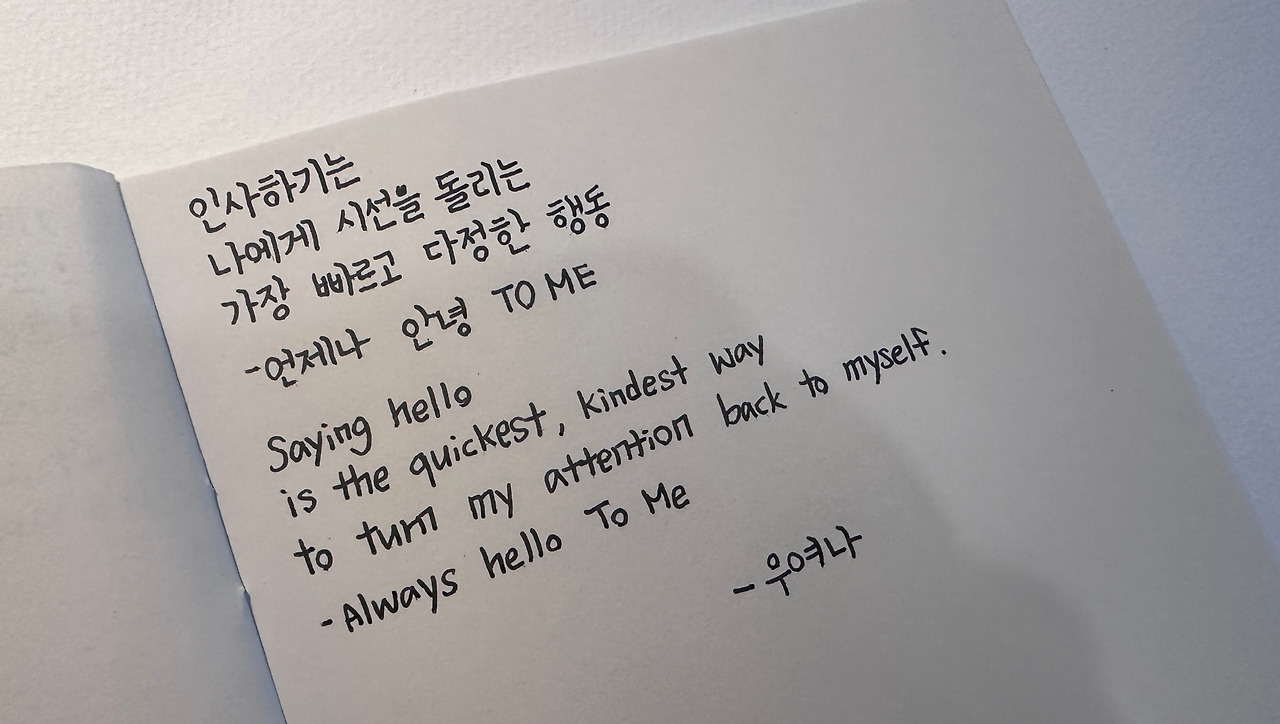 인사하기는
나에게 시선을 돌리는
가장 빠르고 다정한 행동
-언제나 안녕 TO ME
Saying hello
is the quickest, kindest way
to turn my attention back to myself.
-Always hello To Me
-우여나